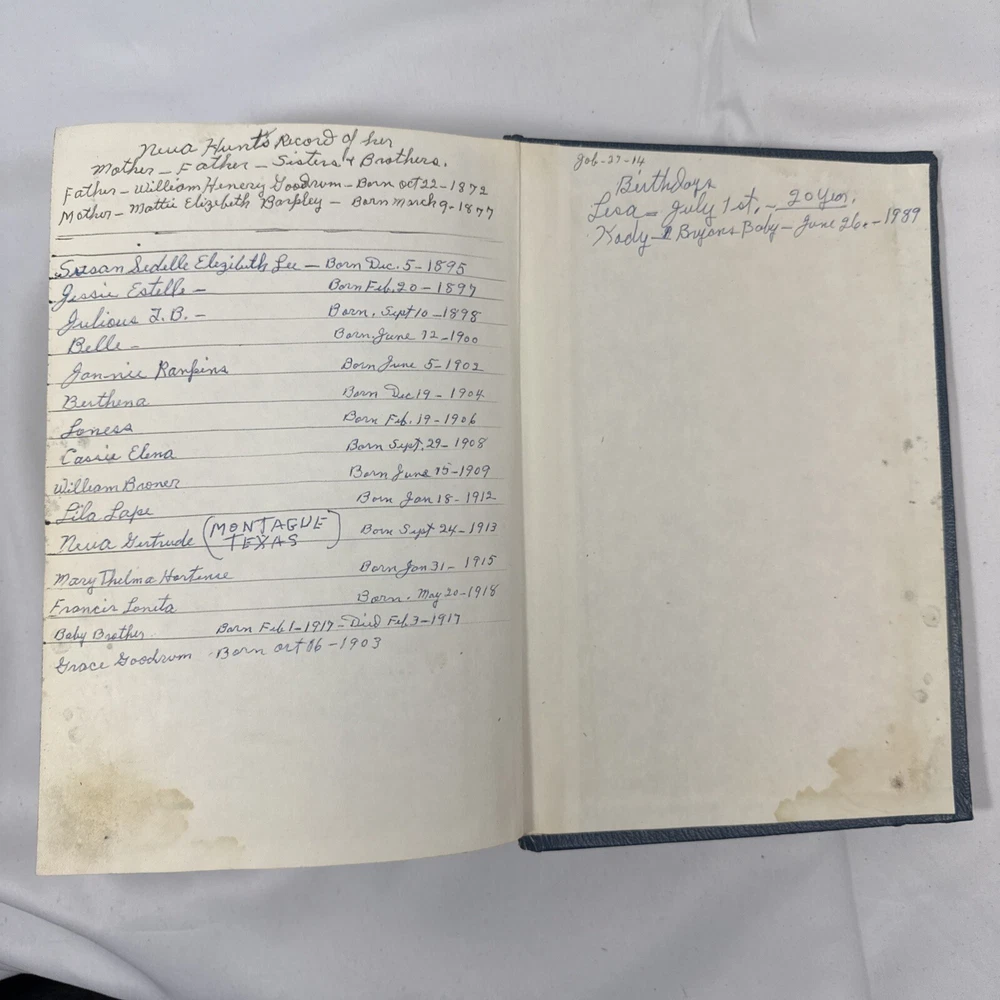 Neva Hunt's Record of her
Mother - Father - Sisters & Brothers.
Father - William Henery Goodrum - Born Oct 22 - 1872
Mother - Mattie Elizebeth Barpley - Born March 9 - 1877
Susan Sedelle Elezibeth Lee - Born Dec. 5 - 1895
Jessie Estelle - Born Feb. 20 - 1897
Julious T.B. - Born. Sept 10 - 1898
Belle - Born. June 12 - 1900
Jannie Born June 5 - 1902
Berthena Born Dec 19 - 1904
Loness Born Feb. 19 - 1906
Cassie Elena Born Sept. 29 - 1908
William Broner Born June 15 - 1909
Lila Lape Born Jan 18 - 1912
Neva Gertrude (MONTAGUE TEXAS) Born Sept 24 - 1913
Mary Thelma Hortense Born Jan 31 - 1915
Francis Loneta Born. May 20 - 1918
Baby Brother Born Feb 1 - 1917 - Died Feb 3 - 1917
Grace Goodrum Born Oct 16 - 1903
Job - 37 - 14
Birthdays
Lesa - July 1st. - 20 Yers.
Kody - Bryons Baby - June 26. - 1989